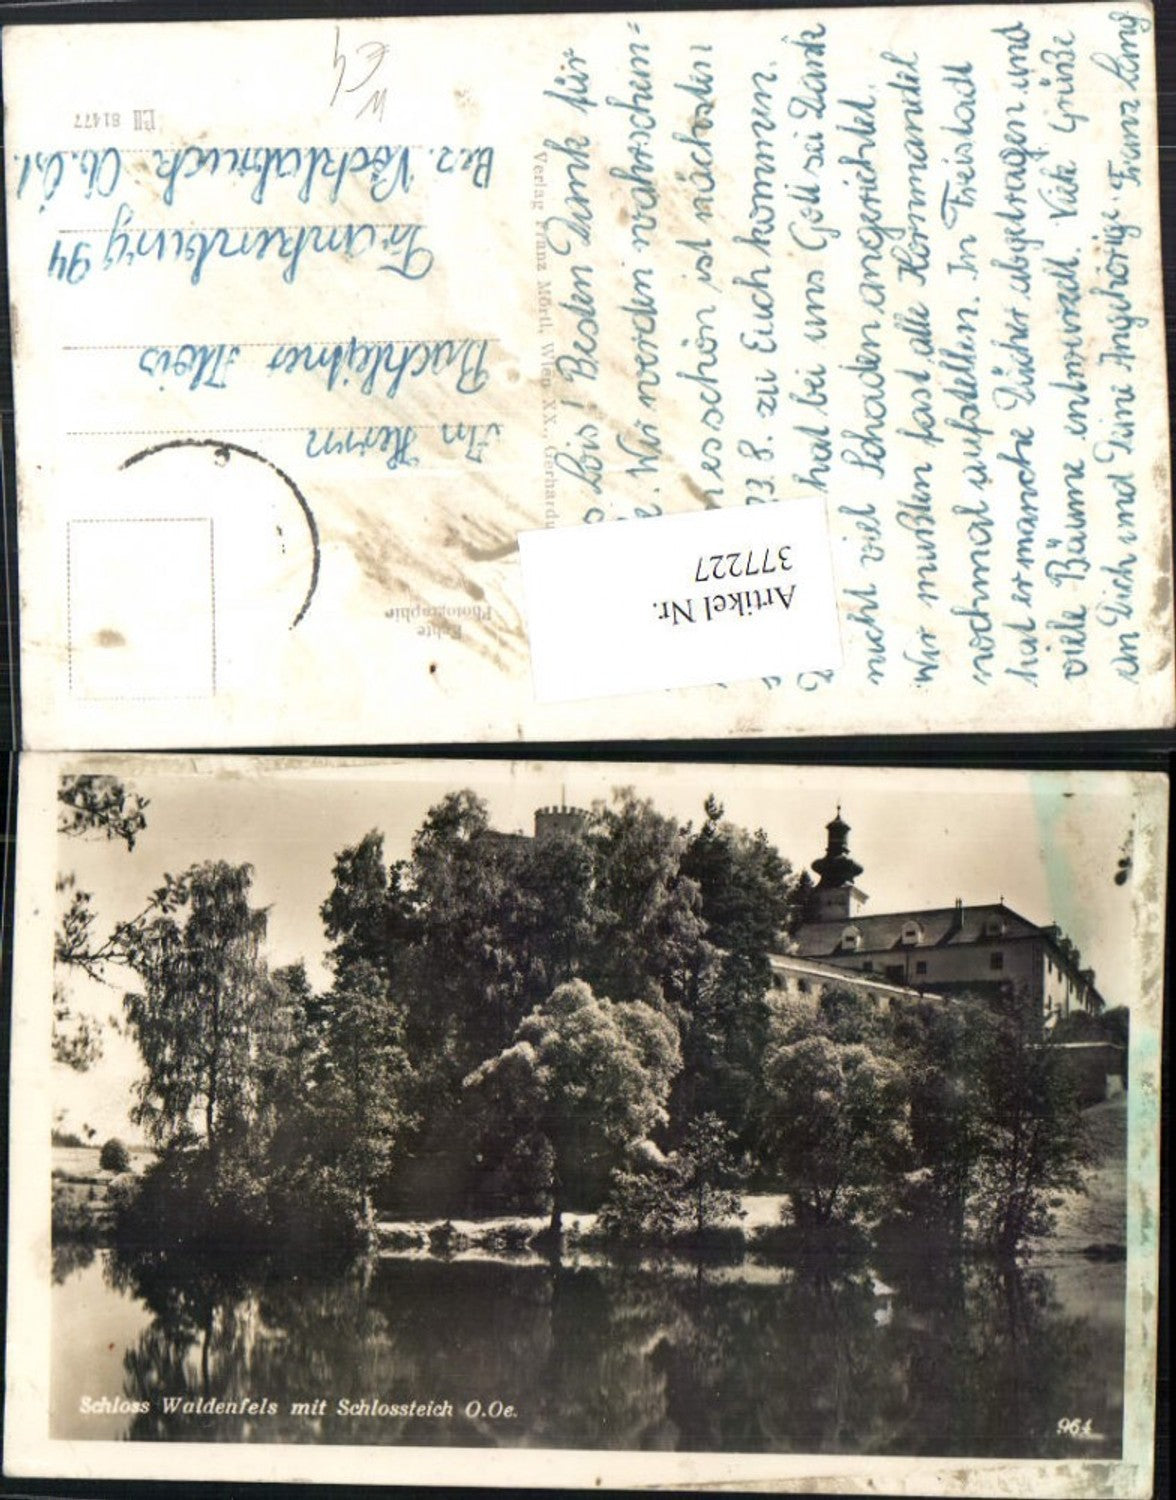 Lois! Besten Dank für
Wir werden wahrschein=
es schön ist nächsten
23.8. zu Euch kommen.
hat bei uns Gott sei Dank
nicht viel Schaden angerichtet.
Wir mußten fast alle Kornmandel
nochmal aufstellen. In Freistadt
hat er manche Dächer abgetragen und
viele Bäume entwurzelt. Viele Grüße
an Dich und Deine Angehörige. Franz
Verlag Franz Mörtl, Wien XX., Gerhardu
Echte
Photographie
An Herrn
Buchleitner Alois
Frankenburg 94
Bez. Vöcklabruck Ob.Öst.
81477
Artikel Nr.
377227
Schloss Waldenfels mit Schlossteich O.Oe.
964